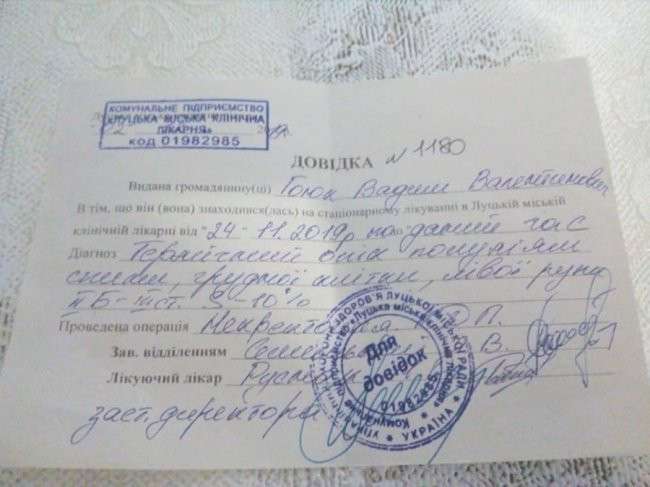 КОМУНАЛЬНЕ ПІДПРИЄМСТВО
«ЛУЦЬКА МІСЬКА КЛІНІЧНА
ЛІКАРНЯ»
код 01982985
ДОВІДКА N 1180
Видана громадянину(ці) Гоюк Вадим Валентинович
В тім, що він (вона) знаходився(лась) на стаціонарному лікуванні в Луцькій міській
клінічній лікарні від "24 - 11.2019р по на даний час
Діагноз Термічний опік полум'ям
спини, грудної клітки, лівої руки
ІІБ-ІІІ ст. S-10%
Проведена операція
Зав. відділенням
Лікуючий лікар
заст. директора
Для
довідок
01982985
УКРАЇНА